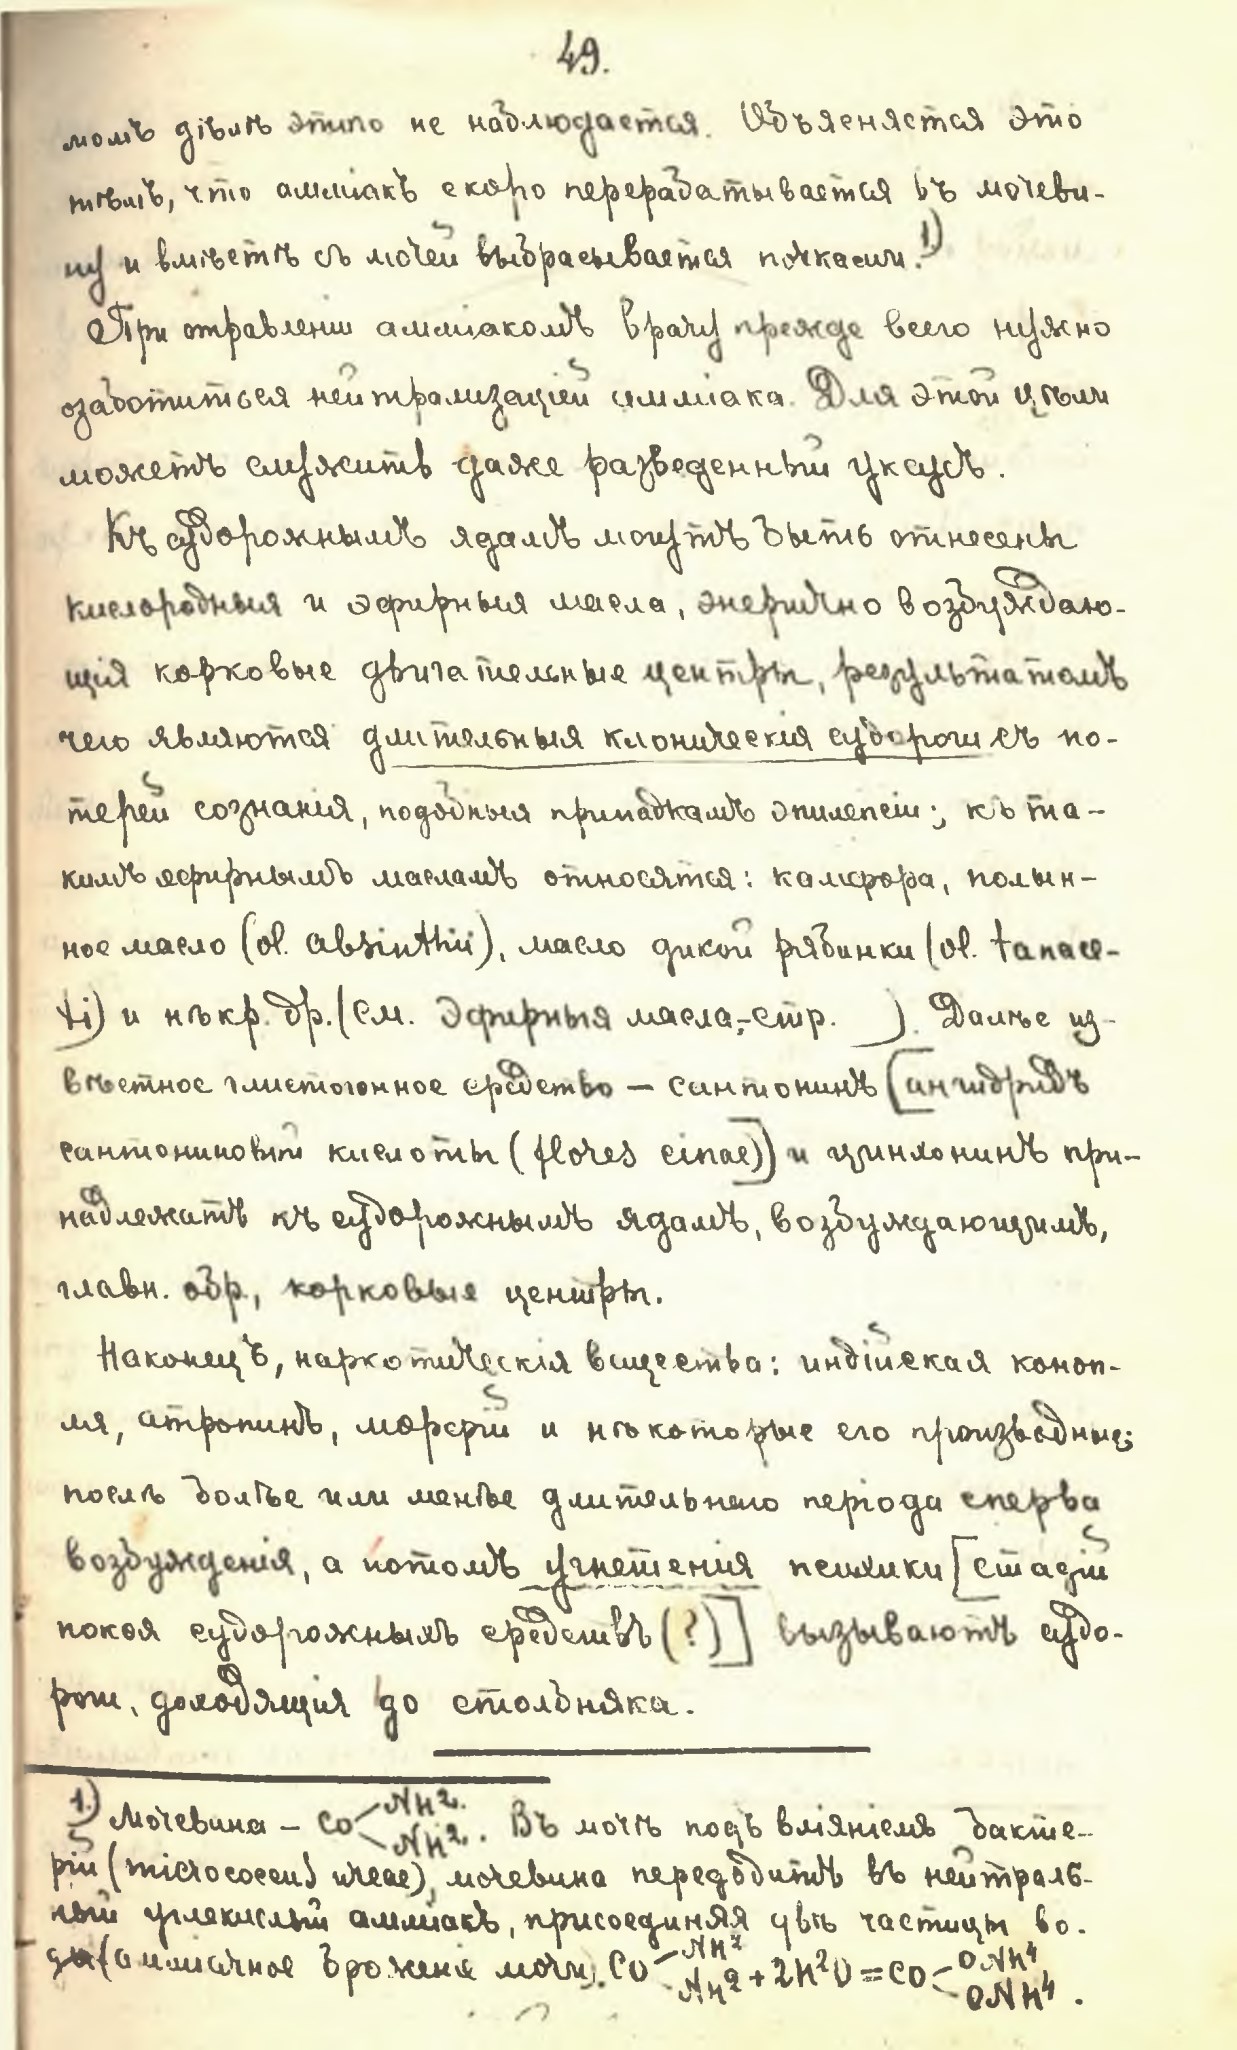 49.
момъ дѣлѣ этого не наблюдается. Объясняется это
тѣмъ, что амміакъ скоро перерабатывается въ мочеви-
ну и вмѣстѣ съ мочей выбрасывается почками.1)
При отравленіи амміакомъ врачу прежде всего нужно
озаботиться нейтрализаціей амміака. Для этой цѣли
можетъ служить даже разведенный уксусъ.
Къ судорожнымъ ядамъ могутъ быть отнесены
кислородныя и эфирныя масла, энергично возбуждаю-
щія корковые двигательные центры, результатомъ
чего являются длительныя клоническія судороги съ по-
терей сознанія, подобныя припадкамъ эпилепсіи; къ та-
кимъ эфирнымъ масламъ относятся: камфора, полын-
ное масло (ol. absinthii), масло дикой рябинки (ol. tanace-
ti) и нѣкр. др. (см. Эфирныя масла,-стр. ). Далѣе из-
вѣстное глистогонное средство — сантонинъ [ангидридъ
сантониновой кислоты (flores cinae)] и цинхонинъ при-
надлежатъ къ судорожнымъ ядамъ, возбуждающимъ,
главн. обр, корковые центры.
Наконецъ, наркотическія вещества: индійская коноп-
ля, атропинъ, морфій и нѣкоторые его производные;
послѣ болѣе или менѣе длительнаго періода сперва
возбужденія, а потомъ угнетенія психики [стадій
покоя судорожныхъ средствъ (?)] вызываютъ судо-
роги, доходящія до столбняка.
1.) Мочевина — CO NH2. NH2. Въ мочѣ подъ вліяніемъ бакте-
рій (micrococcus ureae), мочевина переходитъ въ нейтраль-
ный углекислый амміакъ, присоединяя двѣ частицы во-
ды (амміачное броженіе мочи). CO NH2 NH2 + 2H2O = CO ONH4 ONH4.